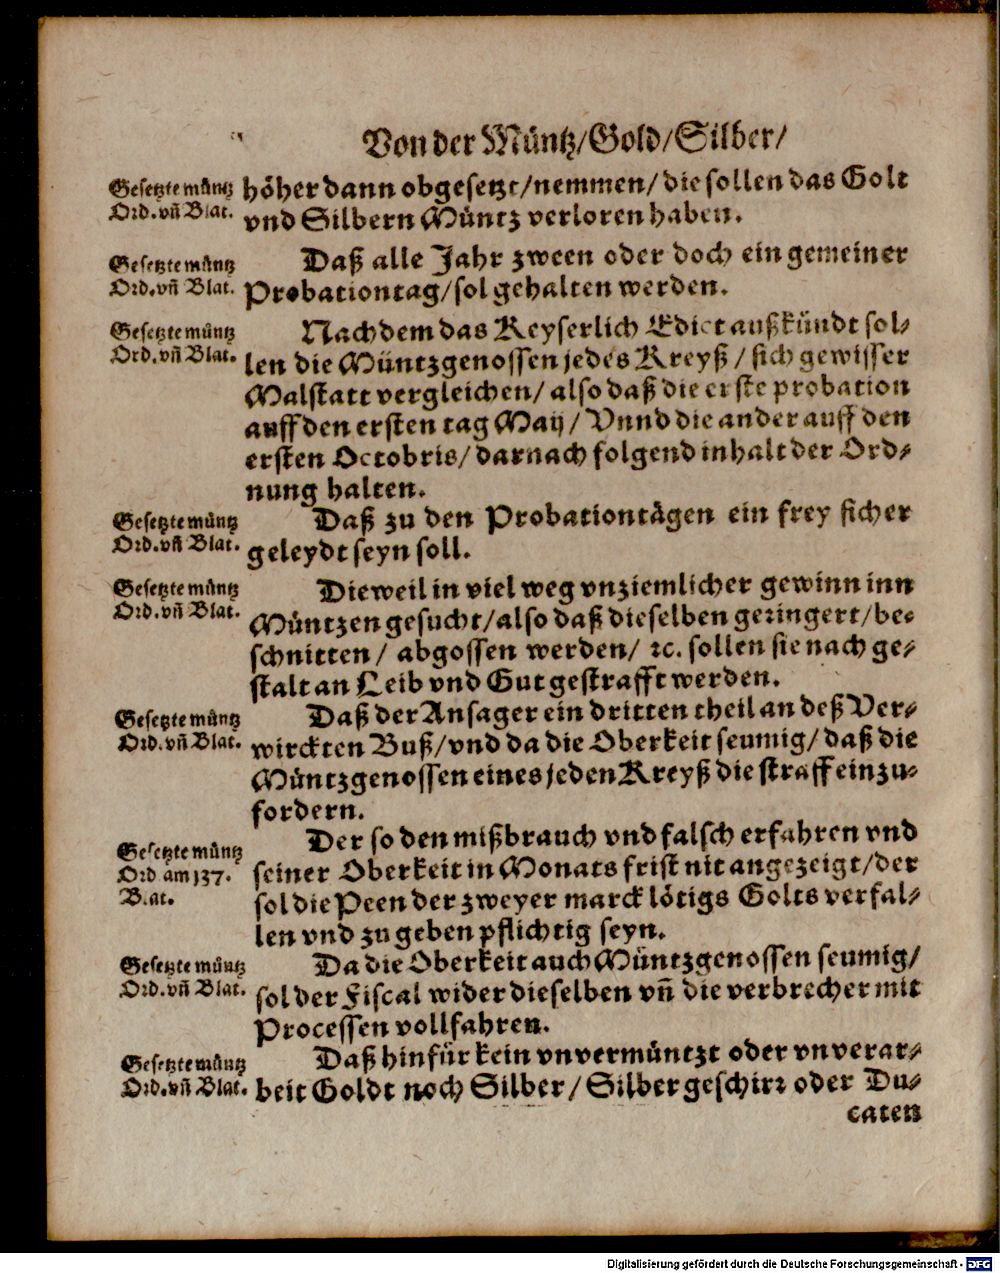 Von der Müntz/Gold/Silber/
Gesetzte müntz
Ord. vñ Blat.
höher dann obgesetzt/nemmen/die sollen das Golt
vnd Silbern Müntz verloren haben.
Gesetzte müntz
Ord. vñ Blat.
Daß alle Jahr zween oder doch ein gemeiner
Probationtag/sol gehalten werden.
Gesetzte müntz
Ord. vñ Blat.
Nachdem das Keyserlich Edict außkündt sol-
len die Müntzgenossen jedes Kreyß/ sich gewisser
Malstatt vergleichen/ also daß die erste probation
auff den ersten tag May/ Vnnd die ander auff den
ersten Octobris/ darnach folgend inhalt der Ord-
nung halten.
Gesetzte müntz
Ord. vñ Blat.
Daß zu den Probationtägen ein frey sicher
geleydt seyn soll.
Gesetzte müntz
Ord. vñ Blat.
Dieweil in viel weg vnziemlicher gewinn inn
Müntzen gesucht/also daß dieselben geringert/be-
schnitten/ abgossen werden/ ꝛc. sollen sie nach ge-
stalt an Leib vnd Gut gestrafft werden.
Gesetzte müntz
Ord. vñ Blat.
Daß der Ansager ein dritten theil an deß Ver-
wirckten Buß/vnd da die Oberkeit seumig/daß die
Müntzgenossen eines jeden Kreyß die straff einzu-
fordern.
Gesetzte müntz
Ord am 137.
Blat.
Der so den mißbrauch vnd falsch erfahren vnd
seiner Oberkeit in Monats frist nit angezeigt/der
sol die Peen der zweyer marck lötigs Golts verfal-
len vnd zu geben pflichtig seyn.
Gesetzte müntz
Ord. vñ Blat.
Da die Oberkeit auch Müntzgenossen seumig/
sol der Fiscal wider dieselben vñ die verbrecher mit
Processen vollfahren.
Gesetzte müntz
Ord. vñ Blat.
Daß hinfür kein vnvermüntzt oder vnverar-
beit Goldt noch Silber/Silbergeschirꝛ oder Du-
caten
Digitalisierung gefördert durch die Deutsche Forschungsgemeinschaft - DFG